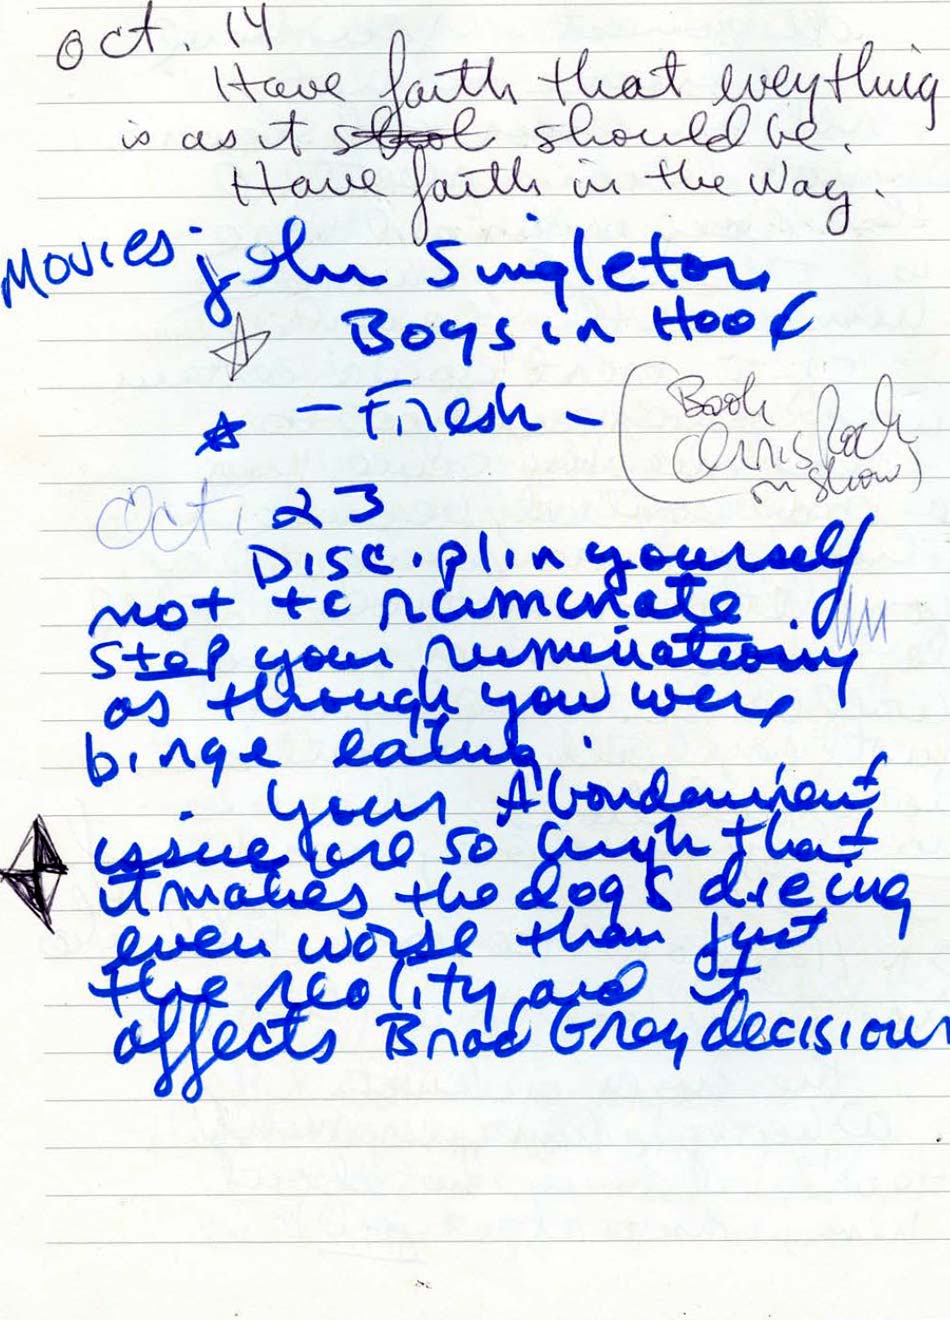 Oct. 14
Have faith that eveything
is as it should be.
Have faith in the Way.
Movies - John Singleton
Boys in Hood
- Fresh - (Book
Chris Rock
on show)
Oct. 23
Disciplin yourself
not to ruminate.
Stop your ruminations
as through you were
binge eating.
Your Abondanment
issue are so high that
it makes the dog's dieing
even worse than just
the reality, and it
affects Brad Grey decision